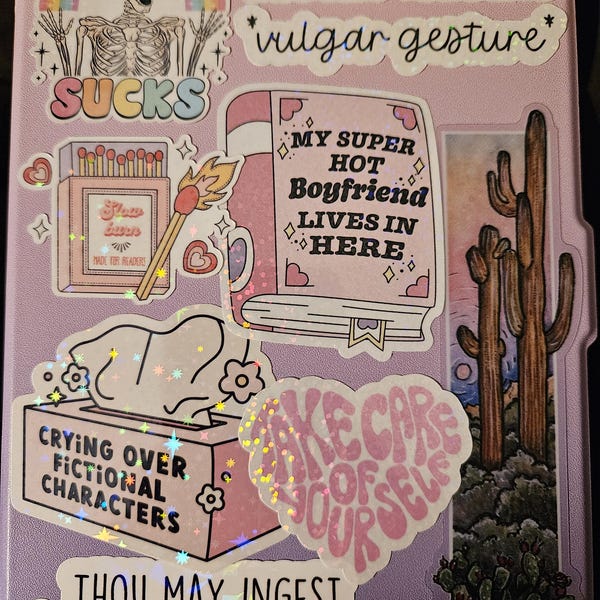 *vulgar gesture*
SUCKS
MY SUPER
HOT
Boyfriend
LIVES IN
HERE
Slow
burn
MADE FOR READERS
CRYING OVER
FICTIONAL
CHARACTERS
TAKE CARE
OF
YOURSELF
THOU MAY INGEST